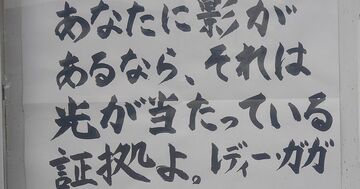 あなたに影が
あるなら、それは
光が当たっている
証拠よ。レディー・ガガ